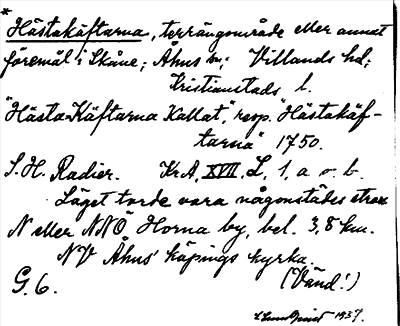 *
Hästakäftarna, terrängområde eller annat
föremål i Skåne; Åhus sn; Villands hd;
Kristianstads l.
"Hästa-Käftarna Kallat", resp. "Hästakäf-
tarna" 1750.
S. H. Radier. Kr A, XVII, L, 1, a o. b.
Läget torde vara någonstädes strax
N eller NNÖ Horna by, bel. 3,8 km.
NV Åhus' köpings kyrka.
G. 6. (Vänd!)
1937.